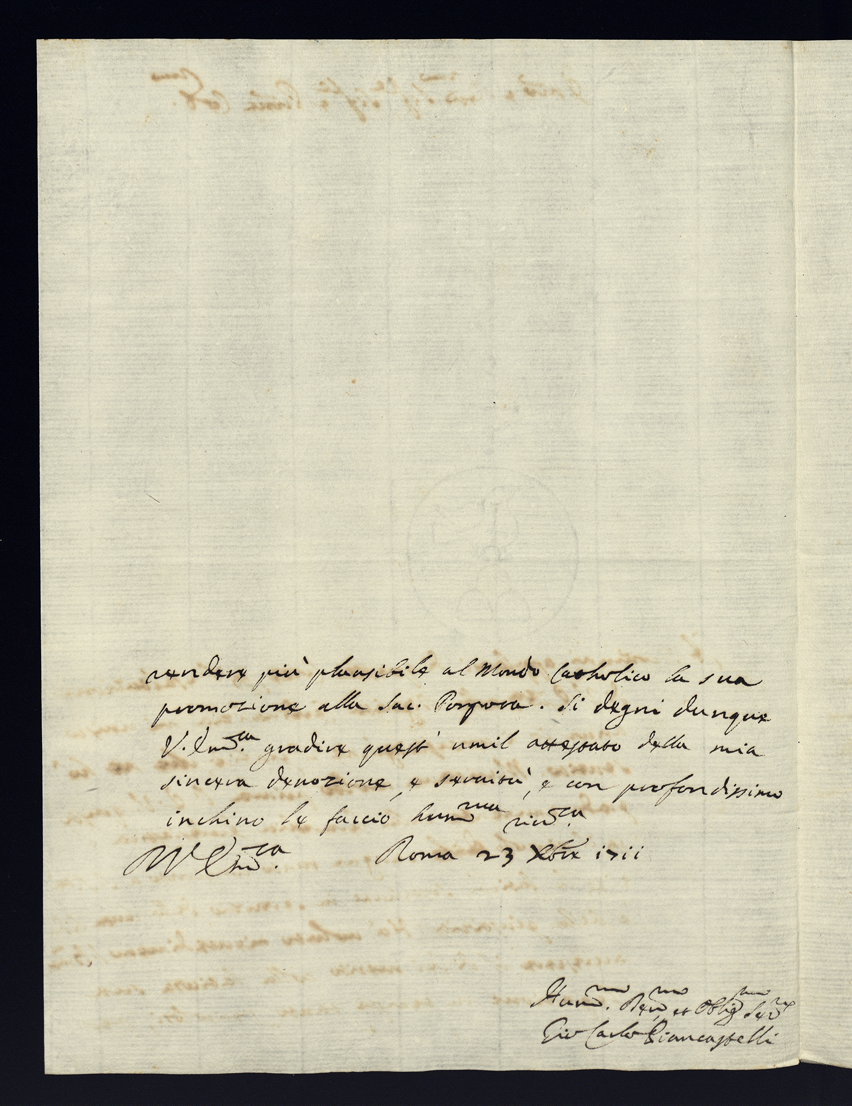 rendere più plausibile al Mondo Catholico la sua
promozione alla Sac. Porpora. Si degni dunque
V. Em.za gradire quest' umil attestato della mia
sincera devozione, e servitù, e con profondissimo
inchino le faccio hum.ma riv.za
Roma 23 Xbre 1711
Hum.mo Dev.mo et Oblig.mo Ser.re
Gio Carlo Piancastelli